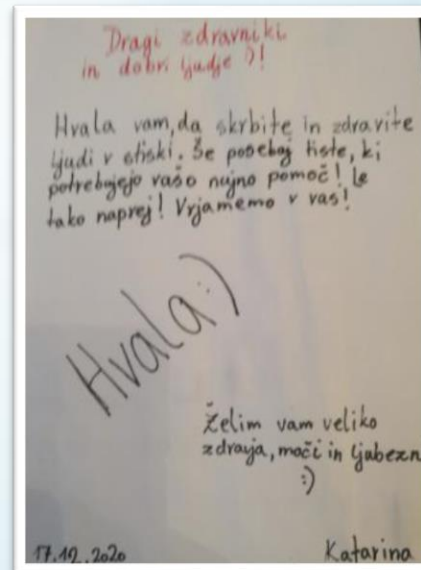 Dragi zdravniki
in dobri ljudje :)!
Hvala vam, da skrbite in zdravite
ljudi v stiski. Še posebaj tiste, ki
potrebujejo vašo nujno pomoč! Le
tako naprej! Vrjamemo v vas!
Hvala :)
Želim vam veliko
zdravja, moči in ljubezn
:)
17.12.2020 Katarina